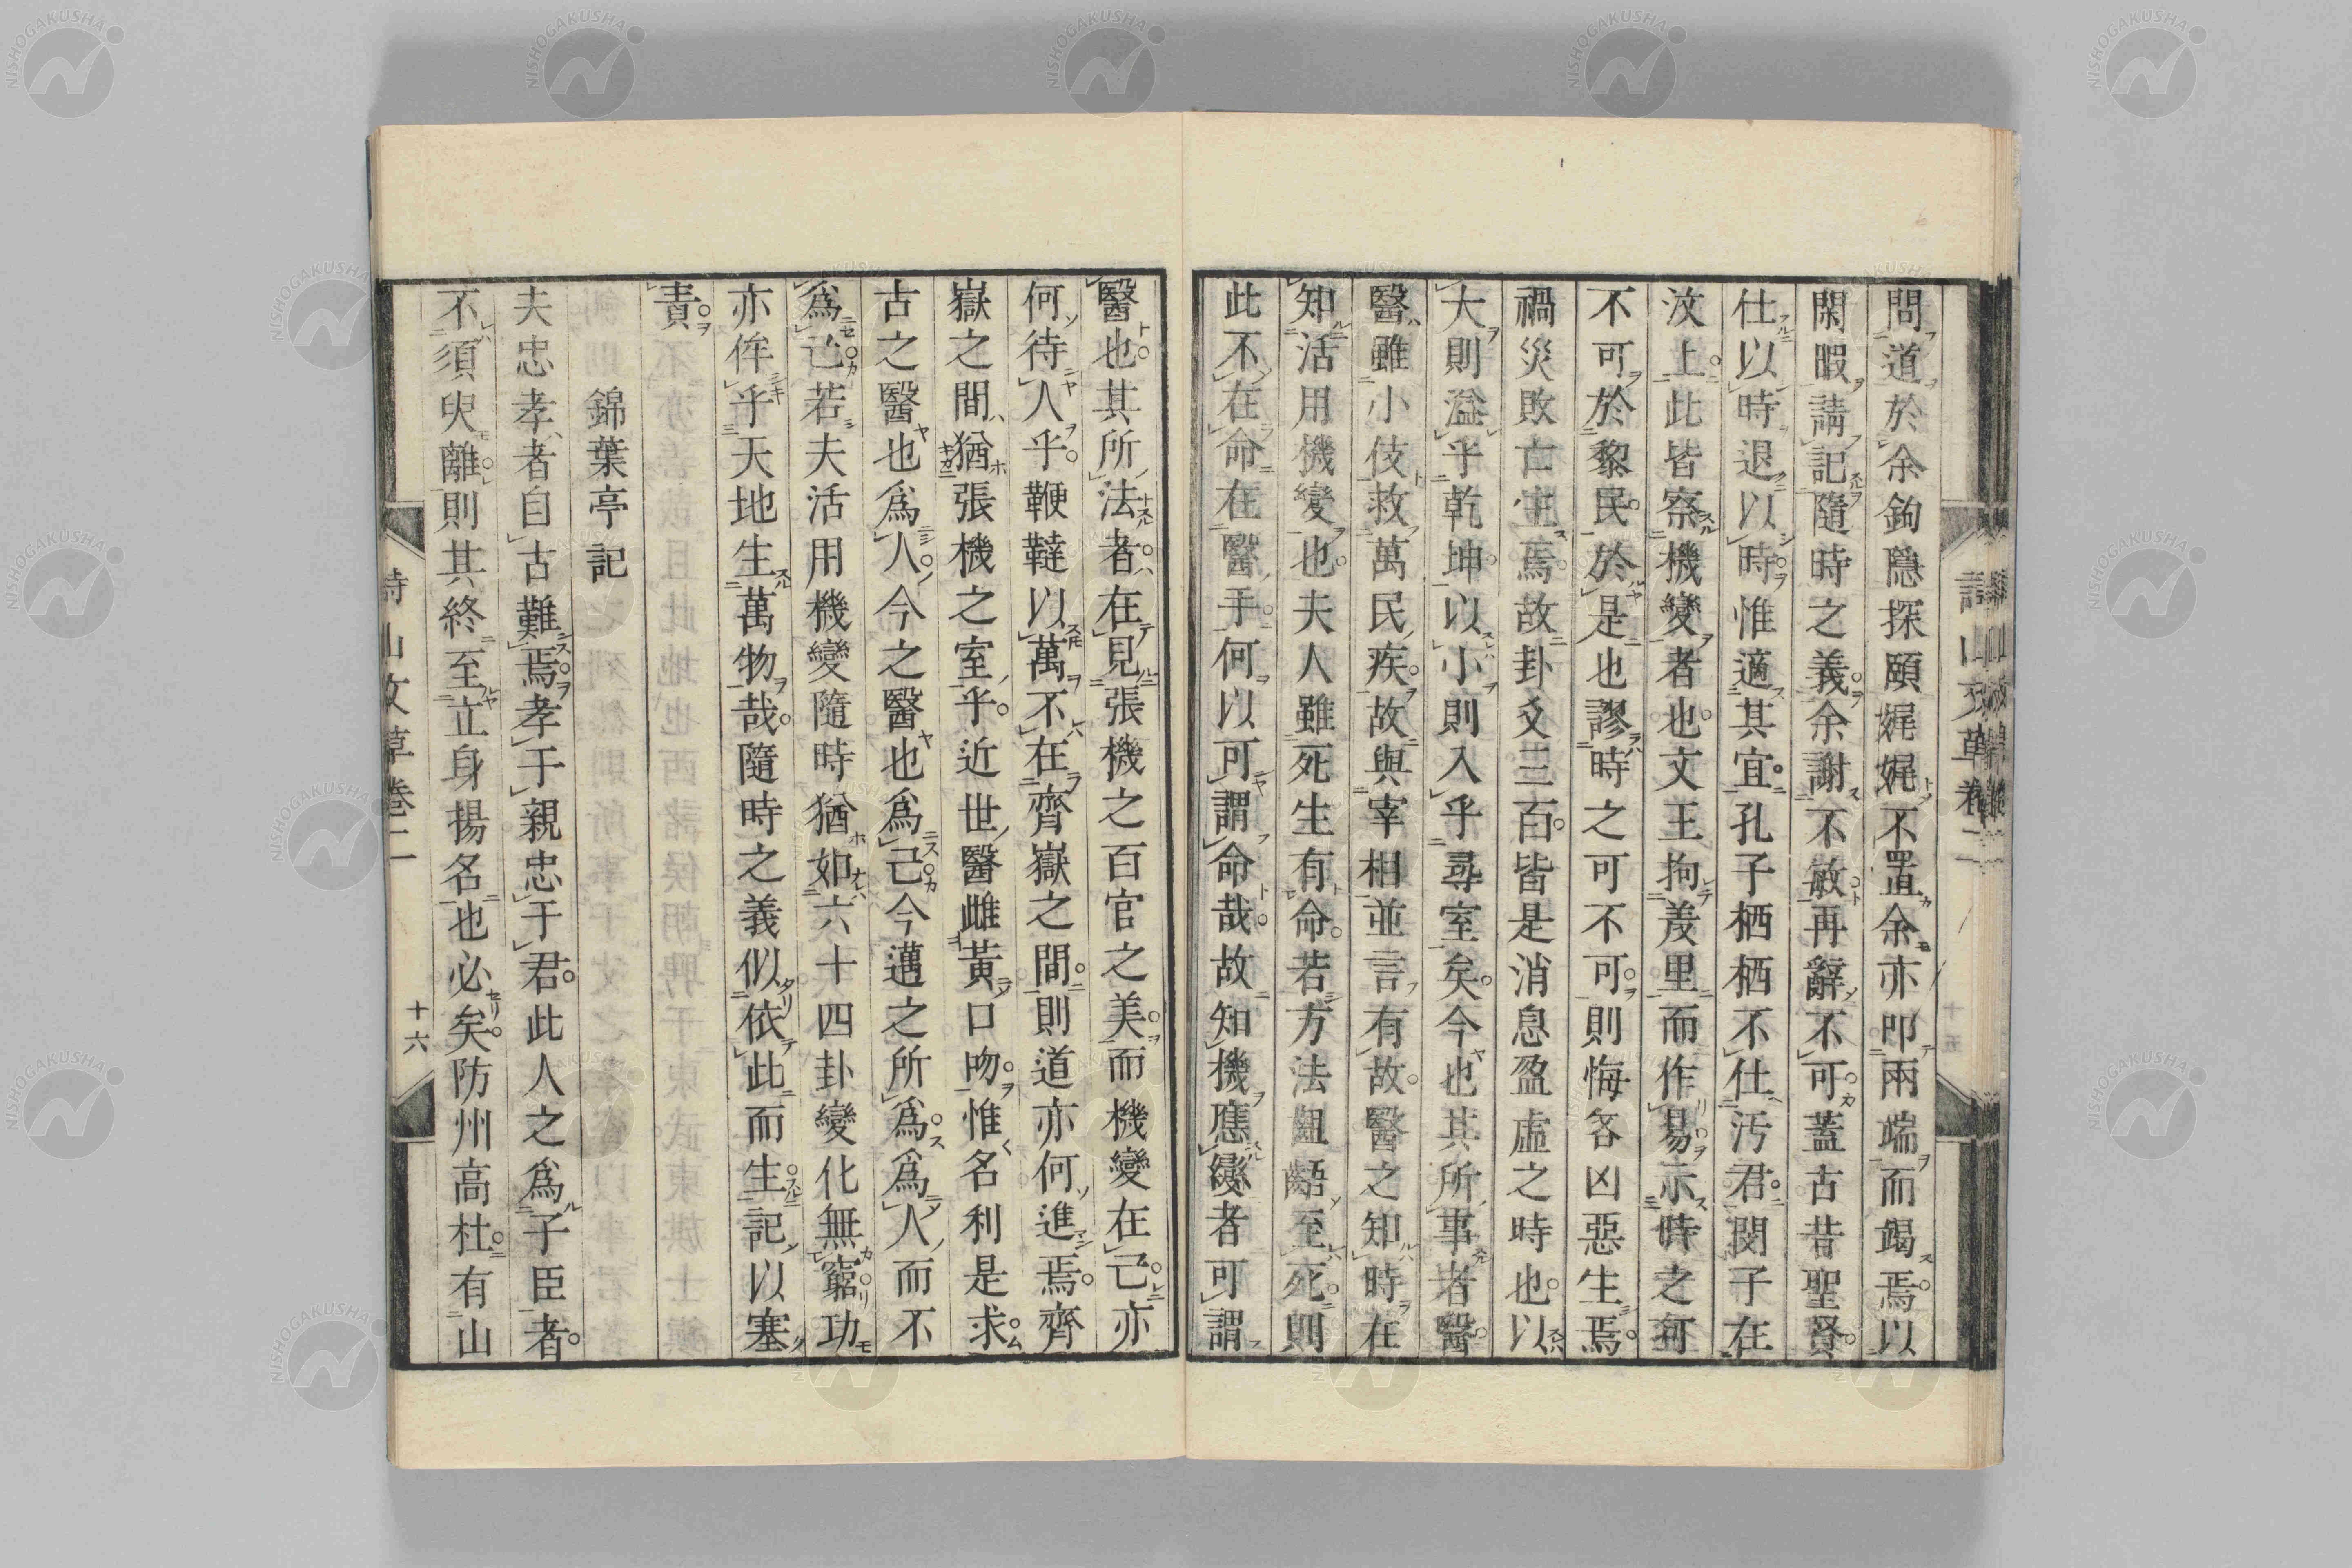 問道於余鉤隱探頤娓娓不置余亦叩兩端而竭焉以
閑暇請記隨時之義余謝不敏再辭不可蓋古昔聖賢
仕以時退以時惟適其宜孔子栖栖不仕汚君閔子在
汶上此皆察機變者也文王拘羑里而作易示時之可
不可於黎民於是也謬時之可不可則悔吝凶惡生焉
禍災敗亡生焉故卦爻三百皆是消息盈虛之時也以
大則溢乎乾坤以小則入乎尋室矣今也其所事者醫
醫雖小伎救萬民疾故與宰相並言有故醫之知時在
知活用機變也夫人雖死生有命若方法齟齬至死則
此不在命在醫手何以可謂命哉故知機應變者可謂
醫也其所法者在見張機之百官之美而機變在己亦
何待人乎鞭韃以萬不在齊嶽之間則道亦何進焉齊
嶽之間猶張機之室乎近世醫雌黃口吻惟名利是求
古之醫也爲人今之醫也爲己今邁之所爲爲人而不
爲己若夫活用機變隨時猶如六十四卦變化無窮功
亦侔乎天地生萬物哉隨時之義似依此而生記以塞
責
錦葉亭記
夫忠孝者自古難焉孝于親忠于君此人之爲子臣者
不須臾離則其終至立身揚名也必矣防州高杜有山
詩山文草卷二
十六
詩山文草卷二
十五
NISHOGAKUSHA